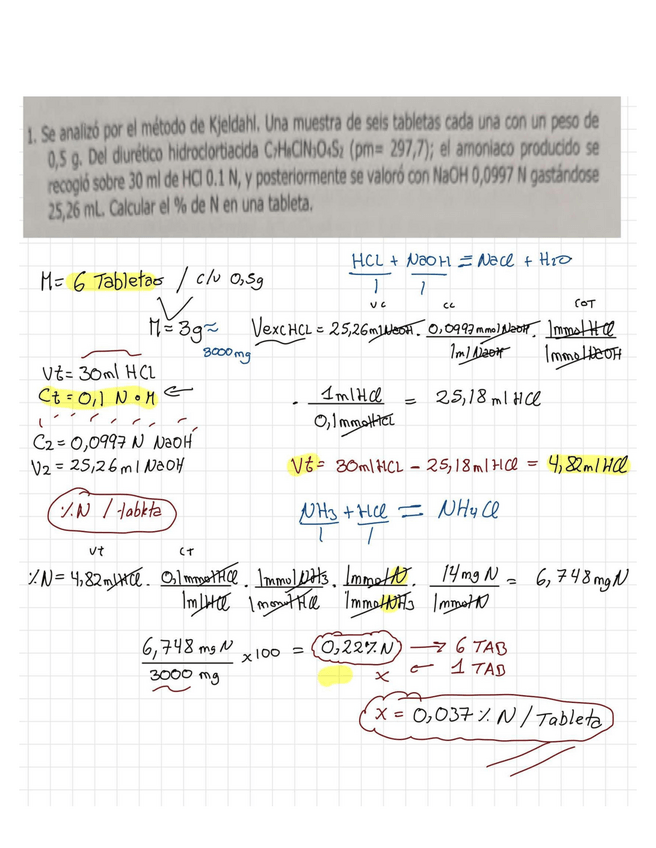 1. Se analizó por el método de Kjeldahl. Una muestra de seis tabletas cada una con un peso de
0,5 g. Del diurético hidroclortiacida C₇H₈ClN₃O₄S₂ (pm= 297,7); el amoniaco producido se
recogió sobre 30 ml de HCl 0.1 N, y posteriormente se valoró con NaOH 0,0997 N gastándose
25,26 mL. Calcular el % de N en una tableta.
M= 6 Tabletas / c/u 0,5g
M= 3g ≈ 3000 mg
HCL + NaOH = NaCl + H₂O
1 1
Vc Cc COT
VexcHCL = 25,26 ml NaOH . 0,0997 mmol NaOH / 1 ml NaOH . 1 mmol HCl / 1 mmol NaOH
. 1 ml HCl / 0,1 mmol HCl = 25,18 ml HCl
Vt= 30ml HCL
Ct= 0,1 N o M
C2= 0,0997 N NaOH
V2= 25,26 ml NaOH
Vt= 30ml HCL - 25,18 ml HCl = 4,82 ml HCl
%N / tableta
NH₃ + HCl = NH₄Cl
1 1
Vt CT
%N= 4,82 ml HCl . 0,1 mmol HCl / 1 ml HCl . 1 mmol NH₃ / 1 mmol HCl . 1 mmol N / 1 mmol NH₃ . 14 mg N / 1 mmol N = 6,748 mg N
6,748 mg N / 3000 mg x 100 = 0,22% N → 6 TAB
x ← 1 TAB
x = 0,037 % N / Tableta